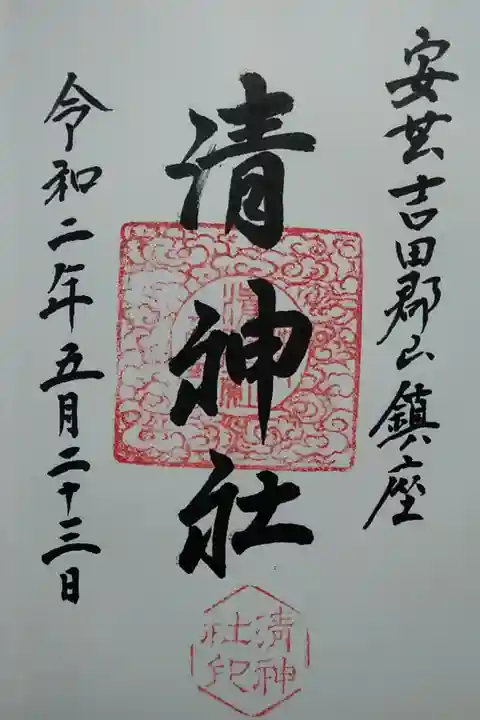 安芸吉田郡山鎮座
清神社
令和二年五月二十三日
清神
社印